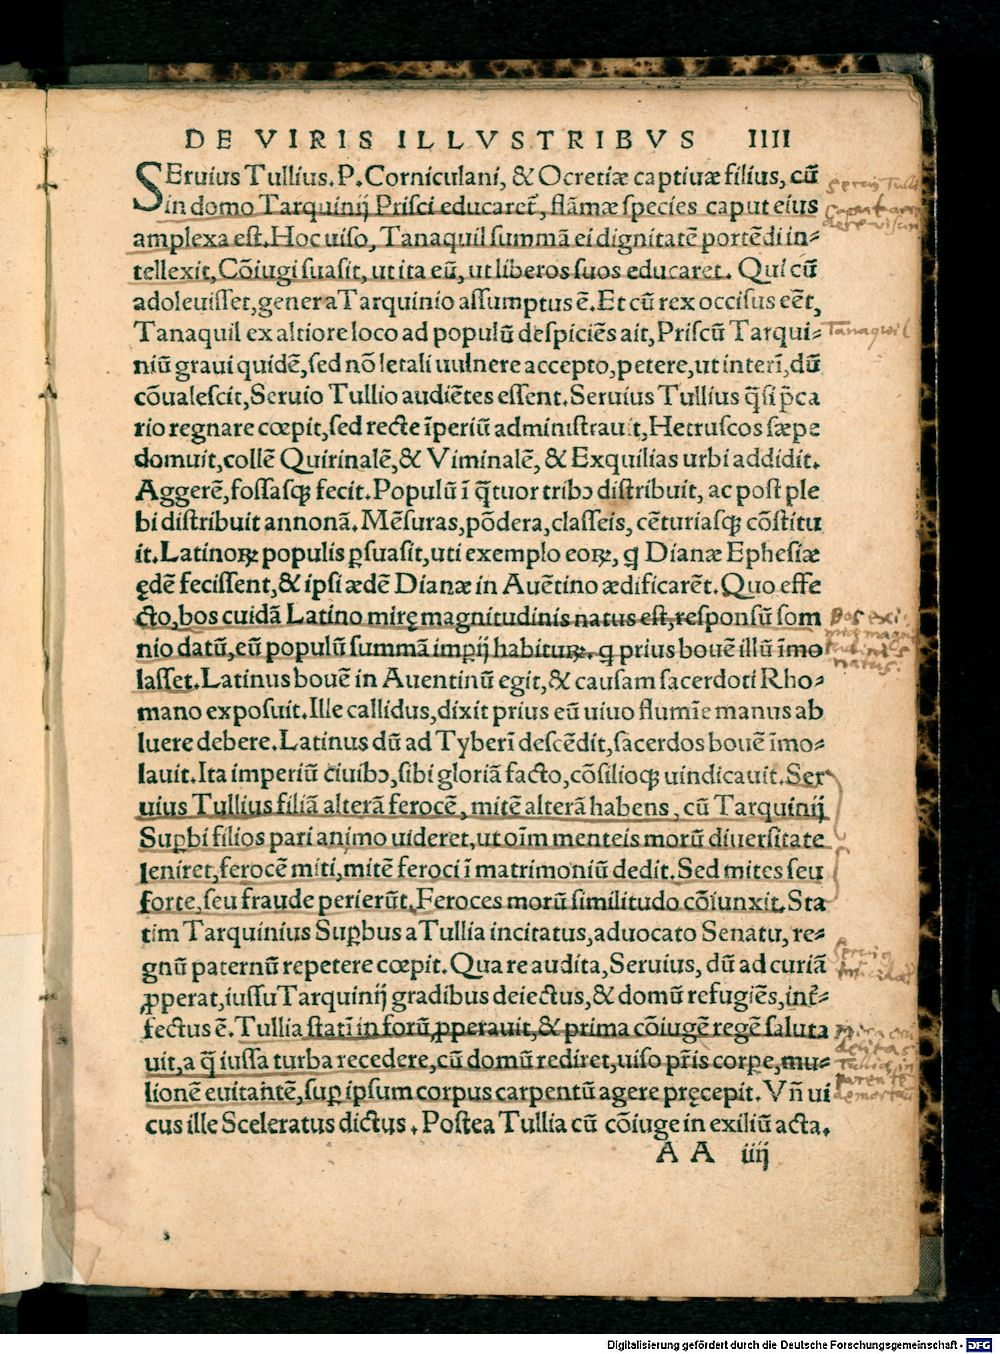 DE VIRIS ILLVSTRIBVS IIII
SEruius Tullius.P.Corniculani, & Ocretiæ captiuæ filius, cũ
in domo Tarquinij Prisci educaret̃, flãmæ species caput eius
amplexa est.Hoc uiso, Tanaquil summã ei dignitatẽ portẽdi in-
tellexit, Cõiugi suasit, ut ita eũ, ut liberos suos educaret. Qui cũ
adoleuisset, gener a Tarquinio assumptus ẽ.Et cũ rex occisus eẽt,
Tanaquil ex altiore loco ad populũ despiciẽs ait, Priscũ Tarqui-
niũ graui quidẽ, sed nõ letali uulnere accepto, petere, ut interĩ, dũ
cõualescit, Seruio Tullio audiẽtes essent.Seruius Tullius q̃si p̃ca
rio regnare cœpit, sed recte ĩperiũ administrauit, Hetruscos sæpe
domuit, collẽ Quirinalẽ, & Viminalẽ, & Exquilias urbi addidit.
Aggerẽ, fossasq̃ fecit.Populũ ĩ q̃tuor tribꝰ distribuit, ac post ple
bi distribuit annonã. Mẽsuras, põdera, classeis, cẽturiasq̃ cõstitu
it. Latinoꝝ populis ꝑsuasit, uti exemplo eoꝝ, q Dianæ Ephesiæ
ędẽ fecissent, & ipsi ædẽ Dianæ in Auẽtino ædificarẽt.Quo effe
cto, bos cuidã Latino mirę magnitudinis natus est, responsũ som
nio datũ, eũ populũ summã imꝑij habituꝝ, q prius bouẽ illũ ĩmo
lasset.Latinus bouẽ in Auentinũ egit, & causam sacerdoti Rho-
mano exposuit. Ille callidus, dixit prius eũ uiuo flumĩe manus ab
luere debere.Latinus dũ ad Tyberĩ descẽdit, sacerdos bouẽ ĩmo-
lauit.Ita imperiũ ciuibꝰ, sibi gloriã facto, cõsilioq̃ uindicauit.Ser
uius Tullius filiã alterã ferocẽ, mitẽ alterã habens, cũ Tarquinij
Suꝑbi filios pari animo uideret, ut oĩm menteis morũ diuersitate
leniret, ferocẽ miti, mitẽ feroci ĩ matrimoniũ dedit. Sed mites seu
forte, seu fraude perierũt.Feroces morũ similitudo cõiunxit.Sta
tim Tarquinius Suꝑbus a Tullia incitatus, aduocato Senatu, re-
gnũ paternũ repetere cœpit.Qua re audita, Seruius, dũ ad curiã
ꝓperat, iussu Tarquinij gradibus deiectus, & domũ refugiẽs, int̃-
fectus ẽ. Tullia statĩ in forũ ꝓperauit, & prima cõiugẽ regẽ saluta
uit, a q̃ iussa turba recedere, cũ domũ rediret, uiso pr̃is corꝑe, mu-
lionẽ euitantẽ, suꝑ ipsum corpus carpentũ agere pręcepit. Vñ ui
cus ille Sceleratus dictus. Postea Tullia cũ cõiuge in exiliũ acta.
A A iiij
Tanaquil
Bos exi
mię magni
tudinis
natus.
Digitalisierung gefördert durch die Deutsche Forschungsgemeinschaft - DFG